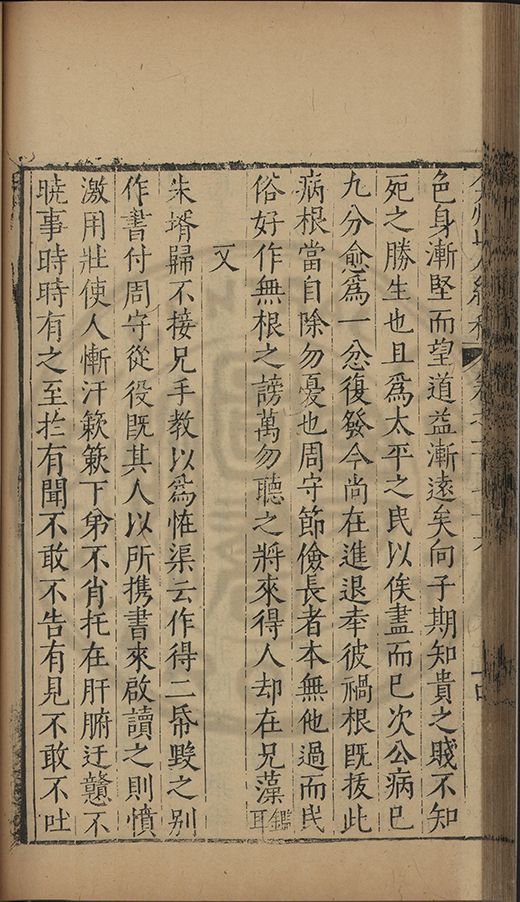 色身漸堅而望道益漸遠矣向子期知貴之賤不知
死之勝生也且爲太平之民以俟盡而已次公病已
九分愈爲一忿復發今尚在進退奉彼禍根旣拔此
病根當自除勿憂也周守節儉長者本無他過而民
俗好作無根之謗萬勿聽之將來得人却在兄藻鑑耳
又
朱壻歸不接兄手教以爲恠渠云作得二帋毀之别
作書付周守從役旣其人以所携書來啟讀之則憤
激用壯使人慚汗簌簌下弟不肖托在肝腑迂戇不
曉事時時有之至於有聞不敢不告有見不敢不吐